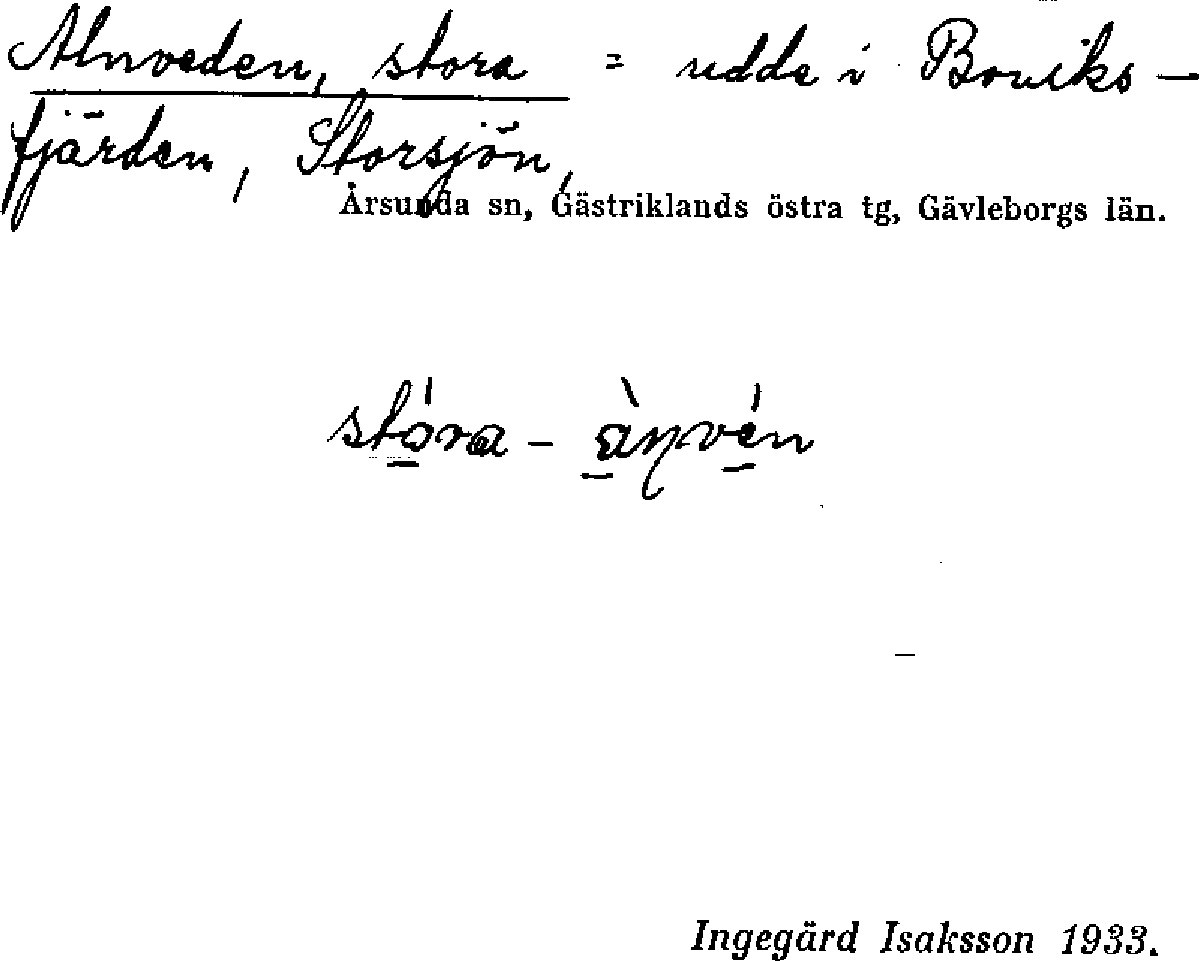 Alnveden, stora = udde i Boviks-
fjärden, Storsjön,
Årsunda sn, Gästriklands östra tg, Gävleborgs län.
stóra - àɳvén
Ingegärd Isaksson 1933.